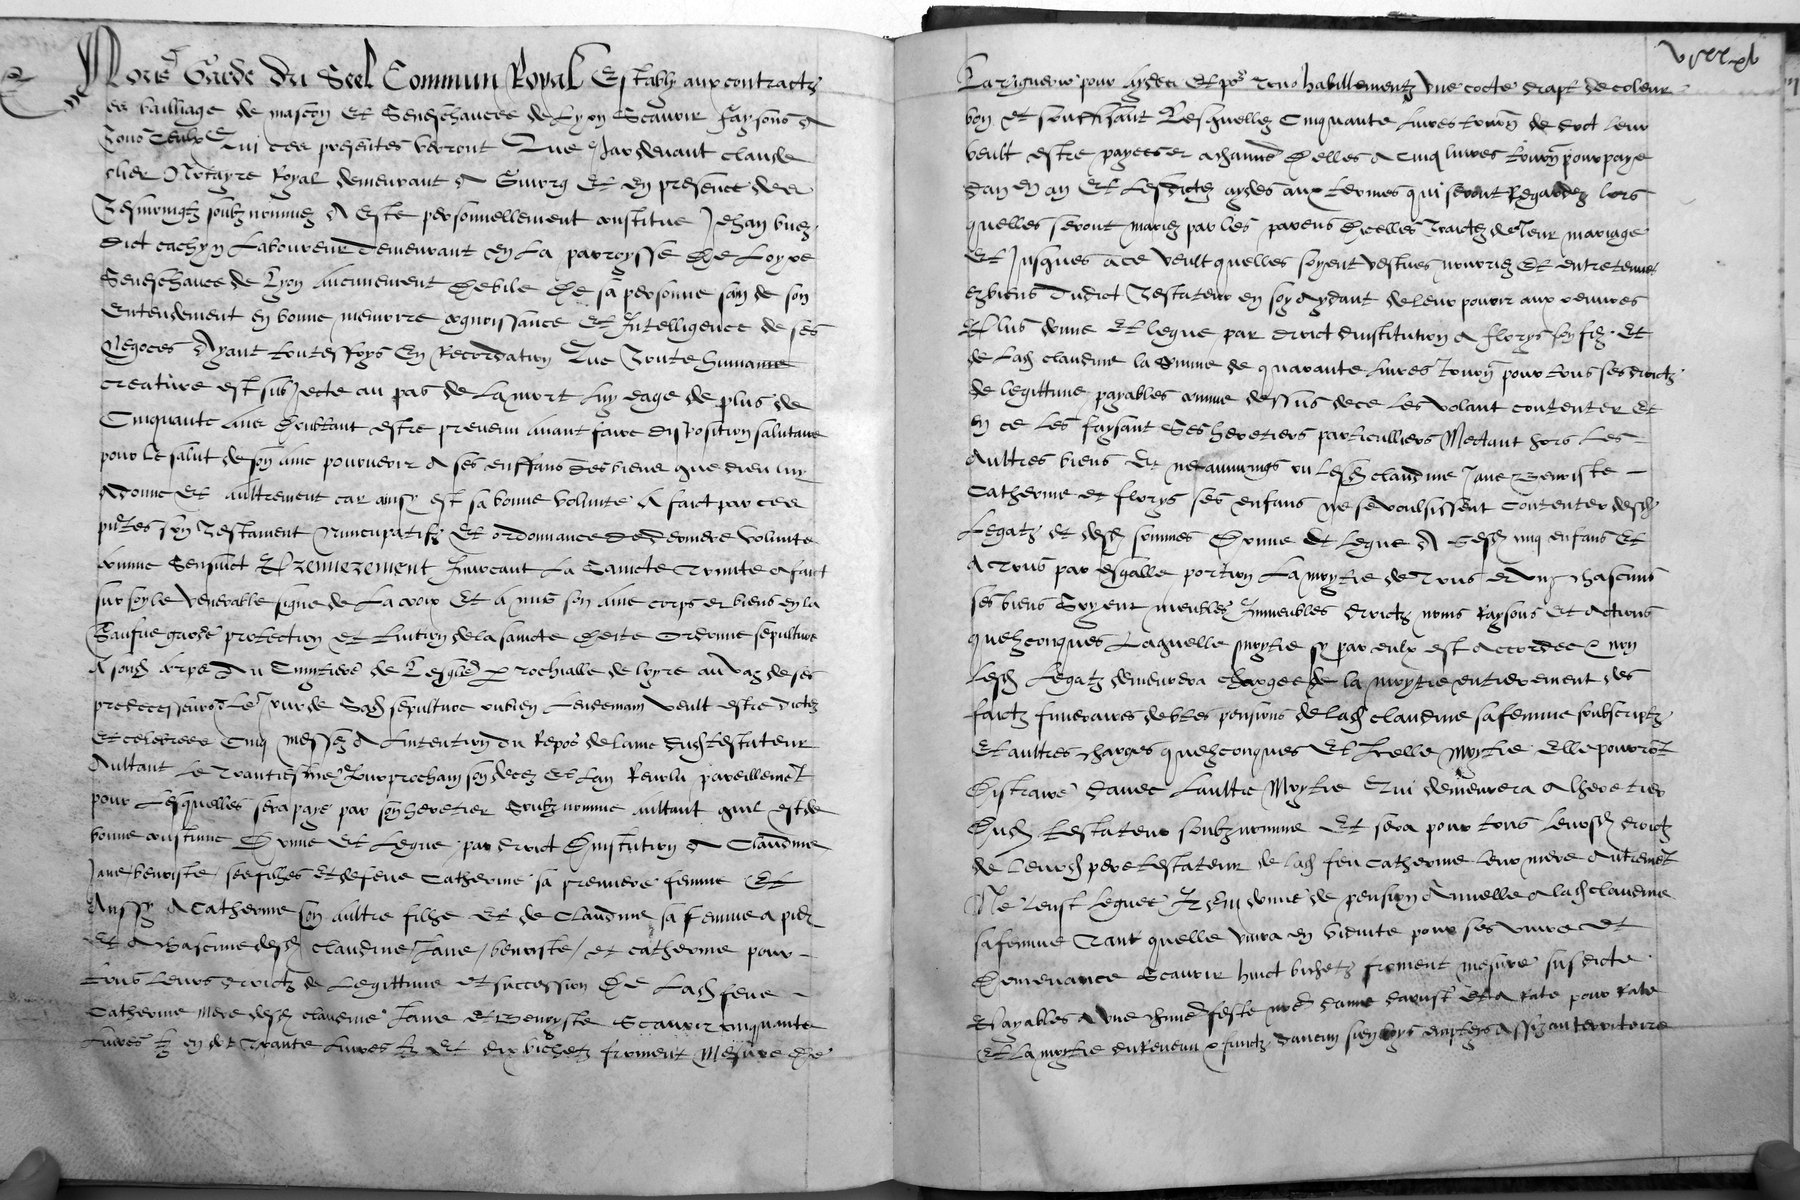 Nous Garde du Seel Commun Royal Estably aux contractz
es bailliage de mascon Et Seneschaucee de Lyon Scavoir faysons A
Tous Ceulx Qui ces presentes verront Que Par devant Claude
Notayre Royal demeurant A Et en presence des
Tesmoingtz soubz nommez A Este personnellement constitue Jehan
dict cachyn Laboureur demeurant En La parroysse De Loyre
Seneschaucee de Lyon aucunement Debile De sa personne sain de son
Entendement En bonne memoire cognoissance Et Intelligence de ses
Negoces Ayant touteffoys En Recordation Que Toute humaine
creature est subjecte au pas de La mort luy eage de plus de
Cinquante Ans Doubtant estre prevenu avant faire disposition salutaire
pour Le salut de son ame pourveoir A ses enffans des biens que dieu luy
A donne Et aultrement car ainsy est sa bonne volunte A faict par ces
pntes son Testament Nuncupatifz Et ordonnance de Derniere volunte
comme Sensuict Et Premierement Invocant La Saincte Trinite A faict
sur soy le venerable signe de La croix Et A mis son ame corps et biens en la
Saulve garde protection et tuition de la saincte Deite Ordonne sepulture
A sond corps Au Cimytiere de Lesglise parrochialle de loyre au vaz de ses
predecesseurs Le jour de Sad sepulture ou bien Lendemain veult estre dictes
Et celebrees Cinq messes A Lintention du Repos de lame dud testateur
Aultant Le Trantiesme Jour prochain son deces Et Lan Revolu pareillement
pour Lesquelles sera paye par son heretier Soubz nomme aultant quil est de
bonne coustume Donne Et Legue par droict Dinstitution A Claudine
Jane benoiste ses filhes Et de feue Catherine sa premiere femme Et
Aussy A Catherine son aultre filhe Et de Claudine sa femme A pnt
Et A chascune desd claudine Jane benoiste et catherine pour
tous Leurs droictz de Legittime et succession De Lad feue
Catherine mere desd claudine Jane Et Benoyste Scavoir cinquante
Livres tz en dot Trante Livres tz Et dix bichetz froment Mesure de
pour aydes Et po trois habillementz une cotte drapt de coleur
bon et souffisant Lesquelles Cinquante Livres tourn de dot leur
veult estre payees A chascune Delles A cinq livres tourn pour paye
dan en an Et Lesdictes aydes aux termes qui seront Regardez lors
quelles seront mariez par les parens Dicelles Traictez de Leur mariage
Et Jusques A ce veult quelles soyent vestues nourries Et entretenues
es biens dudict Testateur en soy Aydant de leur povoir aux oeuvres
Plus donne Et legue par droict dinstitution A florys son filz Et
de Lad claudine la somme de quarante Livres tourn pour tous ses droictz
de legittime payables comme dessus de ce les volant contenter Et
en ce les faysant Ses heretiers particulliers Mettant hors Les
Aultres biens Et neaulmoings ou lesd claudine Jane Benoiste
Catherine et florys ses enfans ne se voulsissent contenter desd
Legatz et desd sommes Donne et Legue A Sesd cinq enfans Et
A Trous par esgalle portion La moytie de Tous et ung chascuns
ses biens Soyent meubles Immeubles droictz noms Raysons Et Actions
quelzconques Laquelle moytie sy par eulx est Accordee non
Lesd Legatz demeurera chargee de la moytie entierement des
faictz funeraires debtes pensions de lad claudine sa femme soubscriptz
Et aultres charges quelzconques Et Icelle Moytie Elle pourront
Distraire Davec Laultre Moytie Qui demeurera A lheretier
Dud testateur soubz nomme Et sera pour tous leursd droictz
de leurd pere testateur de lad feu Catherine leur mere Aultrement
Ne leust leguee Item donne de pension Annuelle A lad claudine
sa femme Tant quelle vivra en viduite pour ses vivre et
Demeurance Scavoir huict bichetz froment mesure susdicte
Payables A une chune feste nre dame daoust Et A Rate pour Rate
Et La moytie du Revenu daucun sien boys assiz au territoire